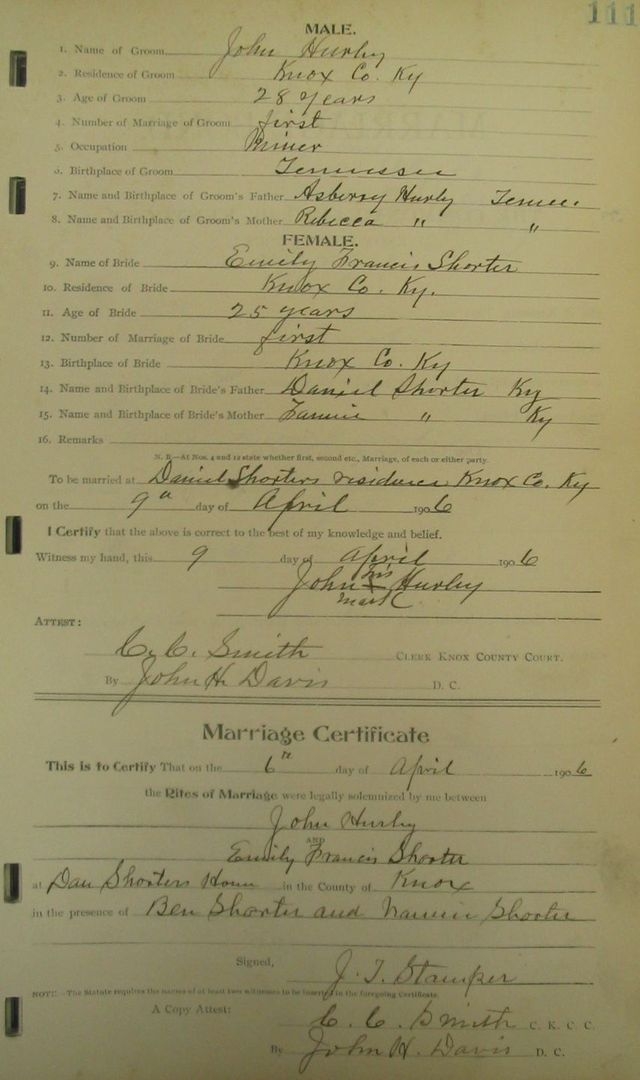 111
MALE.
1. Name of Groom John Hurly
2. Residence of Groom Knox Co. Ky
3. Age of Groom 28 years
4. Number of Marriage of Groom first
5. Occupation Miner
6. Birthplace of Groom Tennessee
7. Name and Birthplace of Groom's Father Asberry Hurly Tenne.
8. Name and Birthplace of Groom's Mother Rebecca " "
FEMALE.
9. Name of Bride Emily Francis Shorter
10. Residence of Bride Knox Co. Ky.
11. Age of Bride 25 years
12. Number of Marriage of Bride first
13. Birthplace of Bride Knox Co. Ky
14. Name and Birthplace of Bride's Father Daniel Shorter Ky
15. Name and Birthplace of Bride's Mother " Ky
16. Remarks
N. B.—At Nos. 4 and 12 state whether first, second etc., Marriage, of each or either party.
To be married at Daniel Shorters residence Knox Co. Ky
on the 9th day of April 1906
I Certify that the above is correct to the best of my knowledge and belief.
Witness my hand, this 9 day of April 1906
John his X mark Hurley
ATTEST:
C. C. Smith CLERK KNOX COUNTY COURT.
By John H. Davis D. C.
Marriage Certificate
This is to Certify That on the 6th day of April 1906
the Rites of Marriage were legally solemnized by me between
John Hurly
AND
Emily Francis Shorter
at Dan Shorters Home in the County of Knox
in the presence of Ben Shorter and Nannie Shorter
Signed, J. T. Stamper
NOTE.—The Statute requires the names of at least two witnesses to be inserted in the foregoing Certificate.
A Copy Attest: C. C. Smith C. K. C. C.
By John H. Davis D. C.